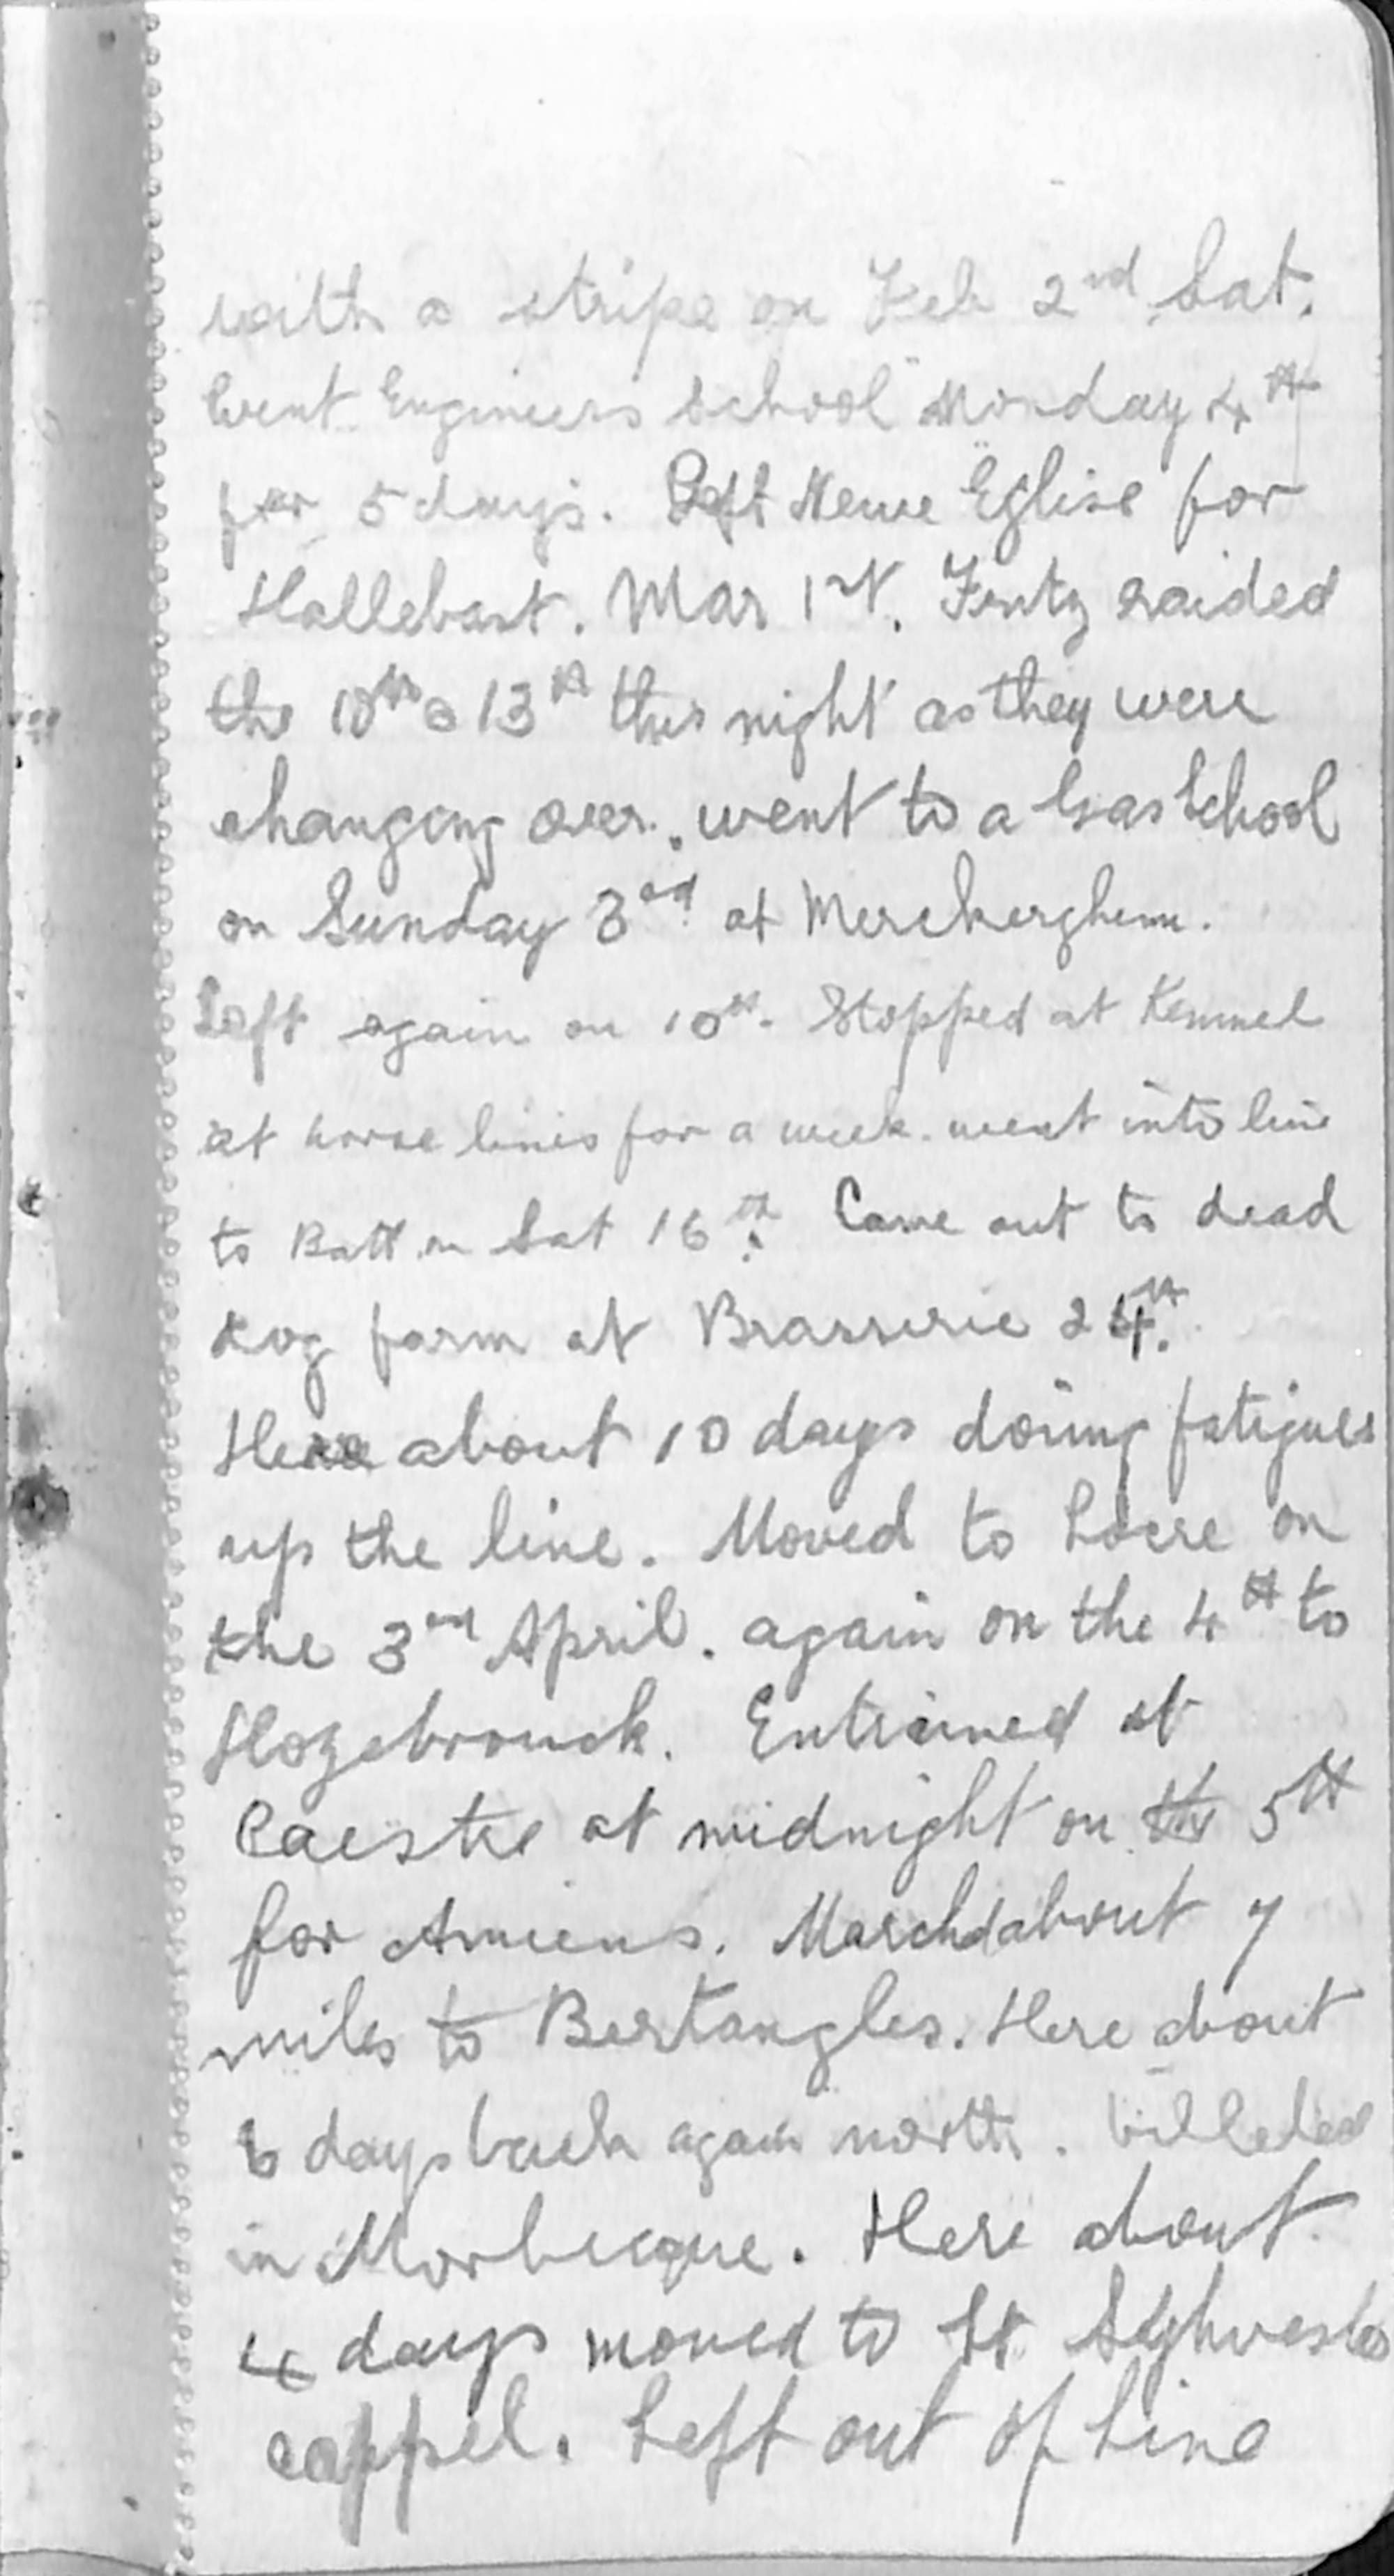 with a stripe on Feb 2nd Sat.
Went Engineers School Monday 4th
for 5 days. Left Neuve Eglise for
Hallebast. Mar 1st. Fritz raided
the 10th & 13th this night as they were
changing over. went to a Gas School
on Sunday 3rd at Merckerghem.
Left again on 10th. Stopped at Kemmel
at horse lines for a week. went into line
to Batt on Sat 16th. Came out to dead
dog farm at Brasserie 24th.
Here about 10 days doing fatigues
up the line. Moved to Locre on
the 3rd April. again on the 4th to
Hazebrouck. Entrained at
Caestre at midnight on the 5th
for Amiens. Marchd about 7
miles to Bertangles. Here about
6 days back again north. billeted
in Morbecque. Here about
4 days moved to St Sylvester
cappel. Left out of Line